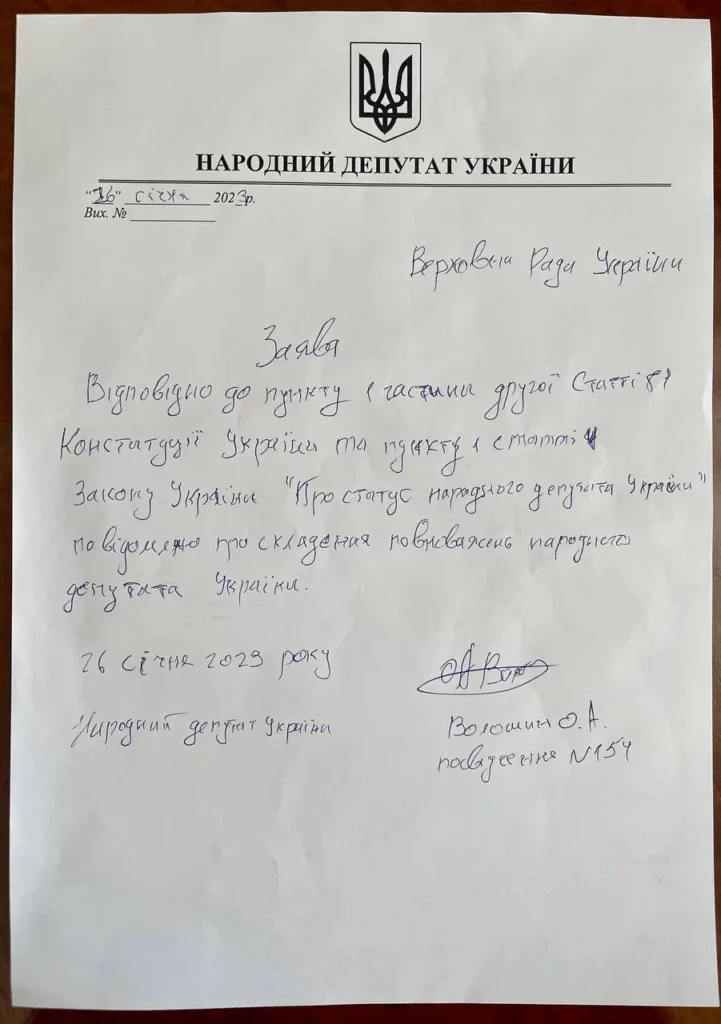 НАРОДНИЙ ДЕПУТАТ УКРАЇНИ
"26" січня 2023р.
Вих. №
Верховна Рада України
Заява
Відповідно до пункту 1 частини другої Статті 81
Конституції України та пункту 1 статті 4
Закону України "Про статус народного депутата України"
повідомляю про складення повноважень народного
депутата України.
26 січня 2023 року
Народний депутат України
Волошин О.А.
посвідчення N154